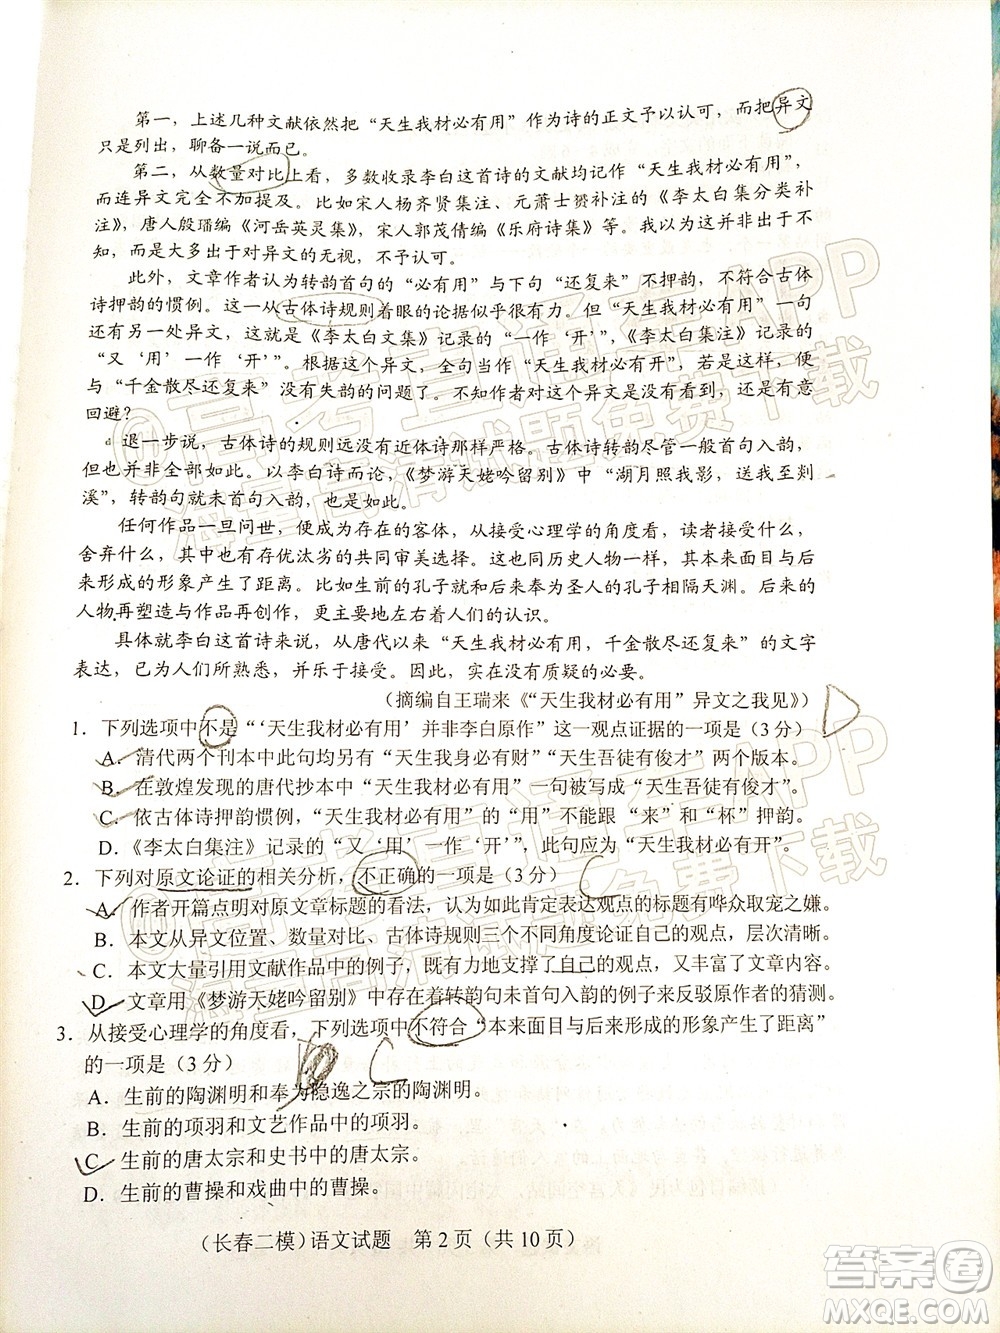 第一，上述几种文献依然把“天生我材必有用”作为诗的正文予以认可，而把异文
只是列出，聊备一说而已。
第二，从数量对比上看，多数收录李白这首诗的文献均记作“天生我材必有用”，
而连异文完全不加提及。比如宋人杨齐贤集注、元萧士赟补注的《李太白集分类补
注》，唐人殷璠编《河岳英灵集》，宋人郭茂倩编《乐府诗集》等。我以为这并非出于不
知，而是大多出于对异文的无视，不予认可。
此外，文章作者认为转韵首句的“必有用”与下句“还复来”不押韵，不符合古体
诗押韵的惯例。这一从古体诗规则着眼的论据似乎很有力。但“天生我材必有用”一句
还有另一处异文，这就是《李太白文集》记录的“一作‘开’”，《李太白集注》记录的
“又‘用’一作‘开’”。根据这个异文，全句当作“天生我材必有开”，若是这样，便
与“千金散尽还复来”没有失韵的问题了。不知作者对这个异文是没有看到，还是有意
回避？
退一步说，古体诗的规则远没有近体诗那样严格。古体诗转韵尽管一般首句入韵，
但也并非全部如此。以李白诗而论，《梦游天姥吟留别》中“湖月照我影，送我至剡
溪”，转韵就未首句入韵，也是如此。
任何作品一旦问世，便成为存在的客体，从接受心理学的角度看，读者接受什么，
舍弃什么，其中也有存优汰劣的共同审美选择。这也如同历史人物一样，其本来面目与后
来形成的形象产生了距离。比如生前的孔子就和后来奉为圣人的孔子相隔天渊。后来的
人物再塑造与作品再创作，主要地左右着人们的认识。
具体就李白这首诗来说，从唐代以来“天生我材必有用，千金散尽还复来”的文字
表达，已为人们所熟悉，并乐于接受。因此，实在没有质疑的必要。
（摘编自王瑞来《“天生我材必有用”异文之我见》）
1．下列选项中不是“‘天生我材必有用’并非李白原作”这一观点证据的一项是（3 分）
A．清代两个刊本中此句均另有“天生我身必有财”“天生吾徒有俊才”两个版本。
B．在敦煌发现的唐代抄本中“天生我材必有用”一句被写成“天生吾徒有俊才”。
C．依古体诗押韵惯例，“天生我材必有用”的“用”不能跟“来”和“杯”押韵。
D．《李太白集注》记录的“又‘用’一作‘开’”，此句应为“天生我材必有开”。
2．下列对原文论证的相关分析，不正确的一项是（3 分）
A．作者开篇点明对原文章标题的看法，认为如此肯定表达观点的标题有哗众取宠之嫌。
B．本文从异文位置、数量对比、古体诗规则三个不同角度论证自己的观点，层次清晰。
C．本文大量引用文献作品中的例子，有力地支撑了自己的观点，又富有文学文化气息。
D．文章用《梦游天姥吟留别》中存在转韵句未首句入韵的例子来反驳原作者的猜测。
3．从接受心理学的角度看，下列选项中不符合“本来面目与后来形成的形象产生了距离”
的一项是（3 分）
A．生前的陶渊明和奉为隐逸之宗的陶渊明。
B．生前的项羽和文艺作品中的项羽。
C．生前的唐太宗和史书中的唐太宗。
D．生前的曹操和戏曲中的曹操。
（长春二模）语文试题　第 2 页（共 10 页）
@高考直通车APP
海量高清试题免费下载
@高考直通车APP
海量高清试题免费下载
答案圈
MXQE.COM